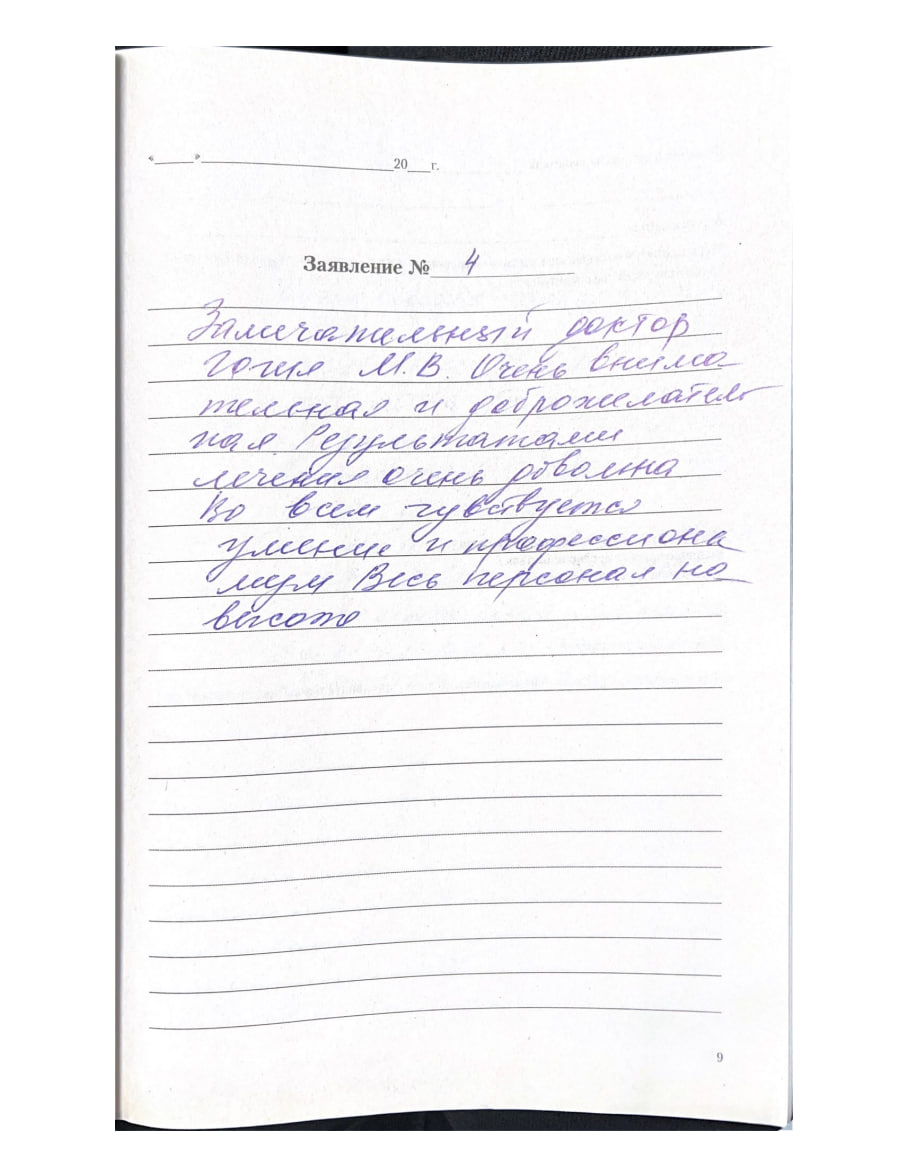 «____»____________________20___г.
Заявление № 4
Замечательный доктор
Гогия М.В. Очень внима
тельная и доброжелатель
ная. Результатами
лечения очень довольна
Во всем чувствуется
умение и профессиона
лизм Весь персонал на
высоте
9